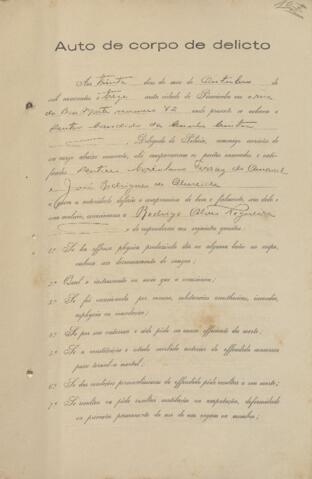 Auto de corpo de delicto
Aos trinta dias do mez de Outubro de
mil novecentos e treze nesta cidade de Piracicaba e a rua
do Boa Morte numero 42 onde presente se achava o
Doutor Candido da Cunha Cintra
Delegado de Policia, commigo escrivão de
seu cargo abaixo nomeado, ahi compareceram os peritos nomeados e noti-
ficados, Doutores Coriolano Ferraz do Amaral
e José Rodrigues de Almeida
a quem a autoridade deferiu o compromisso de bem e fielmente, sem dolo e
sem malicia, examinarem a Rodrigo Alves Nogueira
e de responderem aos seguintes quesitos:
1º Se ha offensa physica produzindo dôr ou alguma lesão no corpo,
embora sem derramamento de sangue;
2º Qual o instrumento ou meio que a occasionou;
3º Se foi occasionada por veneno, substancias anesthesicas, incendio,
asphyxia ou inundação;
4º Se por sua natureza e séde póde ser causa efficiente da morte;
5º Se a constituição e estado morbido anterior do offendido concorrem
para tornal-a mortal;
6º Se das condições personalissimas do offendido póde resultar a sua morte;
7º Se resultou ou póde resultar mutilação ou amputação, deformidade
ou privação permanente do uso de um orgam ou membro;